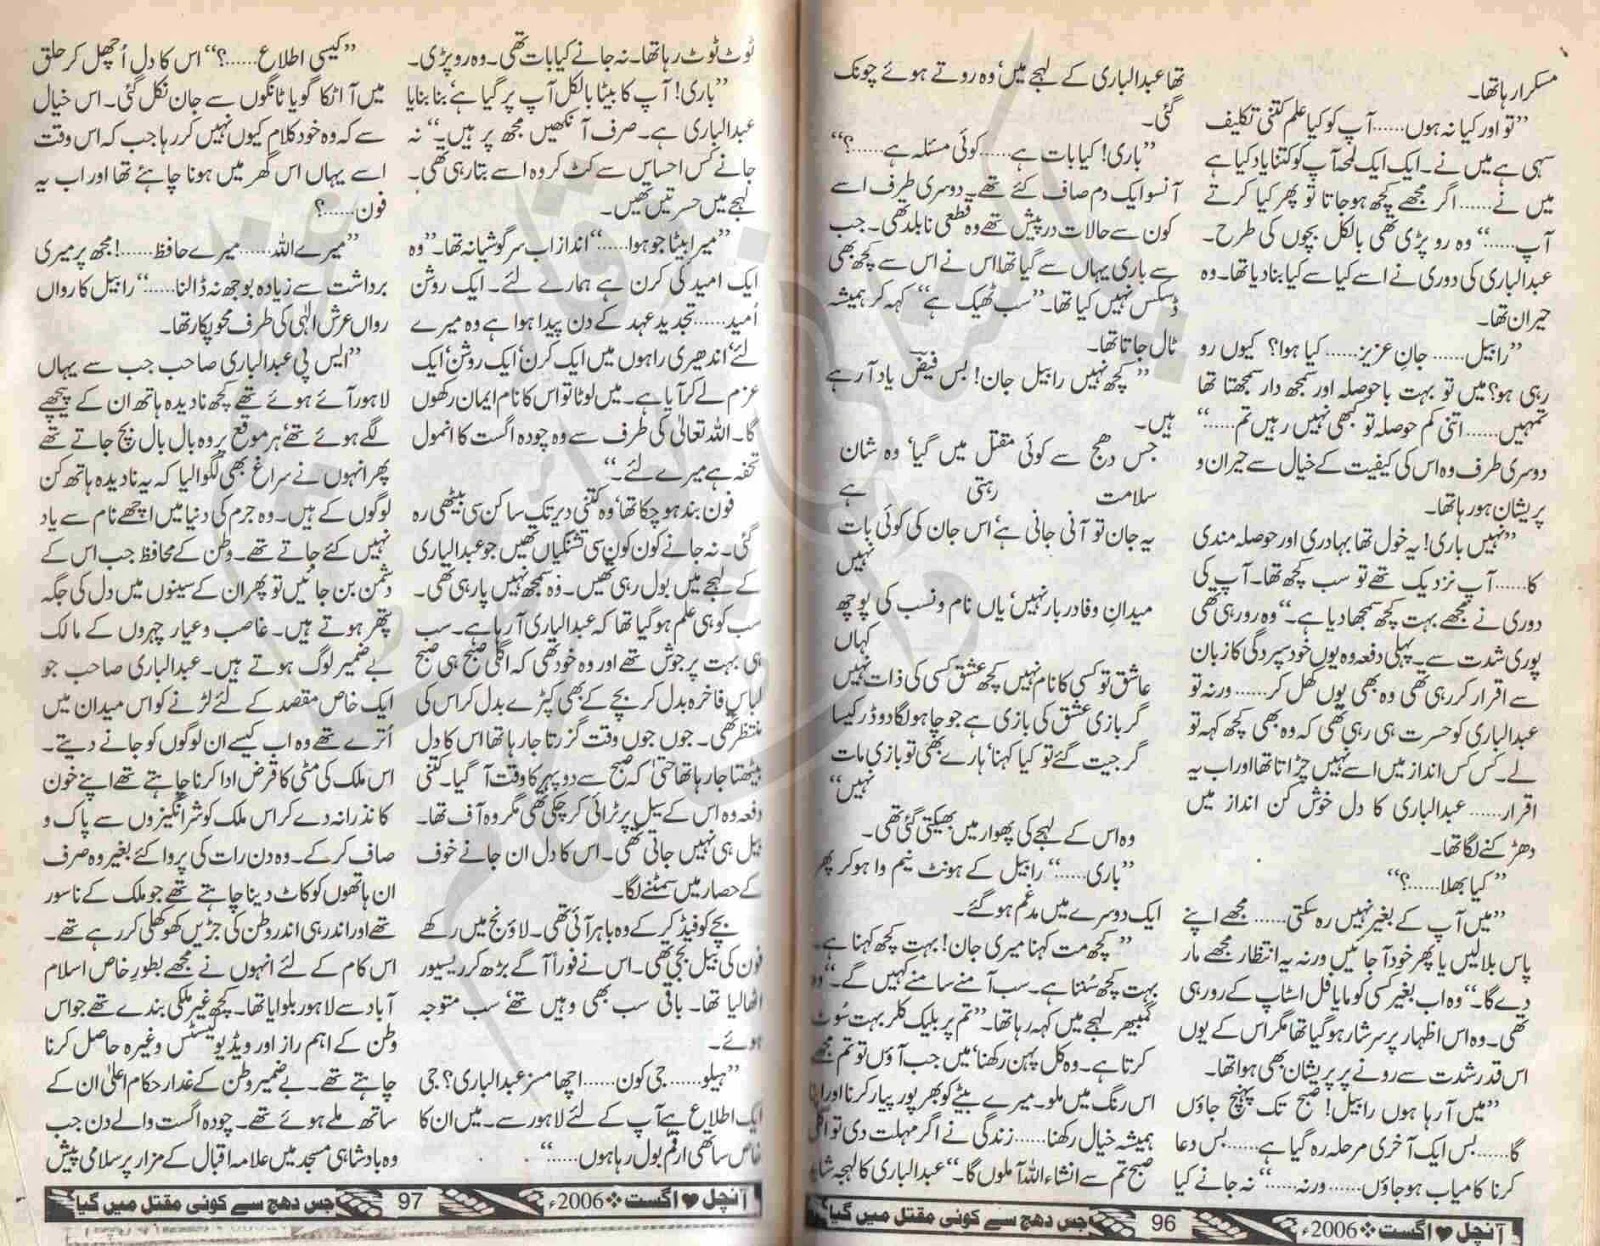 مسکرا رہا تھا۔
”تو اور کیا نہ ہوں...... آپ کو کیا علم کتنی تکلیف
سہی ہے میں نے۔ ایک ایک لمحہ آپ کو کتنا یاد کیا ہے
میں نے...... اگر مجھے کچھ ہو جاتا تو پھر کیا کرتے
آپ......“ وہ رو پڑی تھی بالکل بچوں کی طرح۔
عبدالباری کی دوری نے اسے کیا سے کیا بنا دیا تھا۔ وہ
حیران تھا۔
”رابیل...... جانِ عزیز...... کیا ہوا؟ کیوں رو
رہی ہو؟ میں تو بہت باحوصلہ اور سمجھ دار سمجھتا تھا
تمہیں...... اتنی کم حوصلہ تو کبھی نہیں رہیں تم......“
دوسری طرف وہ اس کی کیفیت کے خیال سے حیران و
پریشان ہو رہا تھا۔
”نہیں باری! یہ خول تھا بہادری اور حوصلہ مندی
کا...... آپ نزدیک تھے تو سب کچھ تھا۔ آپ کی
دوری نے مجھے بہت کچھ سمجھا دیا ہے۔“ وہ رو رہی تھی
پوری شدت سے۔ پہلی دفعہ وہ یوں خود سپردگی کا زبان
سے اقرار کر رہی تھی وہ بھی یوں کھل کر...... ورنہ تو
عبدالباری کو حسرت ہی رہی تھی کہ وہ بھی کچھ کہہ تو
لے۔ کس کس انداز میں اسے نہیں چڑاتا تھا اور اب یہ
اقرار...... عبدالباری کا دل خوش کن انداز میں
دھڑکنے لگا تھا۔
”کیا بھلا......؟“
”میں آپ کے بغیر نہیں رہ سکتی...... مجھے اپنے
پاس بلا لیں یا پھر خود آ جائیں ورنہ یہ انتظار مجھے مار
دے گا۔“ وہ اب بغیر کسی کو ما یا فل اسٹاپ کے رو رہی
تھی۔ وہ اس اظہار پر سرشار ہو گیا تھا مگر اس کے یوں
اس قدر شدت سے رونے پر پریشان بھی ہوا تھا۔
”میں آ رہا ہوں رابیل! صبح تک پہنچ جاؤں
گا...... بس ایک آخری مرحلہ رہ گیا ہے...... بس دعا
کرنا کامیاب ہو جاؤں...... ورنہ......“ نہ جانے کیا
تھا عبدالباری کے لہجے میں‘ وہ روتے ہوئے چونک
گئی۔
”باری! کیا بات ہے...... کوئی مسئلہ ہے......؟“
آنسو ایک دم صاف کئے تھے۔ دوسری طرف اسے
کون سے حالات درپیش تھے وہ قطعی نابلد تھی۔ جب
سے باری یہاں سے گیا تھا اس نے اس سے کچھ بھی
ڈسکس نہیں کیا تھا۔ ”سب ٹھیک ہے“ کہہ کر ہمیشہ
ٹال جاتا تھا۔
”کچھ نہیں رابیل جان! بس فیض یاد آ رہے
ہیں۔
جس دھج سے کوئی مقتل میں گیا‘ وہ شان
سلامت رہتی ہے
یہ جان تو آنی جانی ہے‘ اس جان کی کوئی بات
نہیں
میدانِ وفا دربار نہیں‘ یاں نام و نسب کی پوچھ
کہاں
عاشق تو کسی کا نام نہیں کچھ عشق کسی کی ذات نہیں
گر بازی عشق کی بازی ہے جو چاہو لگا دو ڈر کیسا
گر جیت گئے تو کیا کہنا‘ ہارے بھی تو بازی مات
نہیں“
وہ اس کے لہجے کی پھوار میں بھیگتی گئی تھی۔
”باری......“ رابیل کے ہونٹ نیم وا ہو کر پھر
ایک دوسرے میں مدغم ہو گئے۔
”کچھ مت کہنا میری جان! بہت کچھ کہنا ہے۔
بہت کچھ سُننا ہے۔ سب آمنے سامنے کہیں گے۔“ وہ
گمبھیر لہجے میں کہہ رہا تھا۔ ”تم پر بلیک کلر بہت سُوٹ
کرتا ہے۔ وہ کل پہن رکھنا‘ میں جب آؤں تو تم مجھے
اس رنگ میں ملو۔ میرے بیٹے کو بھرپور پیار کرنا اور اپنا
ہمیشہ خیال رکھنا...... زندگی نے اگر مہلت دی تو اگلی
صبح تم سے انشاء اللہ آ ملوں گا۔“ عبدالباری کا لہجہ شاید
آنچل ♥ اگست ❖ 2006ء 96 جس دھج سے کوئی مقتل میں گیا
ٹوٹ ٹوٹ رہا تھا۔ نہ جانے کیا بات تھی۔ وہ رو پڑی۔
”باری! آپ کا بیٹا بالکل آپ پر گیا ہے‘ بنا بنایا
عبدالباری ہے۔ صرف آنکھیں مجھ پر ہیں۔“ نہ
جانے کس احساس سے کٹ کر وہ اسے بتا رہی تھی۔
لہجے میں حسرتیں تھیں۔
”میرا بیٹا جو ہوا......“ انداز اب سرگوشیانہ تھا۔ ”وہ
ایک امید کی کرن ہے ہمارے لئے۔ ایک روشن
اُمید...... تجدید عہد کے دن پیدا ہوا ہے وہ میرے
لئے‘ اندھیری راہوں میں ایک کرن‘ ایک روشن‘ ایک
عزم لے کر آیا ہے۔ میں لوٹا تو اس کا نام ایمان رکھوں
گا۔ اللہ تعالیٰ کی طرف سے وہ چودہ اگست کا انمول
تحفہ ہے میرے لئے۔“
فون بند ہو چکا تھا‘ وہ کتنی دیر تک ساکن سی بیٹھی رہ
گئی۔ نہ جانے کون کون سی تشنگیاں تھیں جو عبدالباری
کے لہجے میں بول رہی تھیں۔ وہ سمجھ نہیں پا رہی تھی۔
سب کو ہی علم ہو گیا تھا کہ عبدالباری آ رہا ہے۔ سب
ہی بہت پرجوش تھے اور وہ خود بھی کہ اگلی صبح ہی صبح
لباسِ فاخرہ بدل کر بچے کے بھی کپڑے بدل کر اس کی
منتظر تھی۔ جوں جوں وقت گزرتا جا رہا تھا اس کا دل
بیٹھتا جا رہا تھا حتیٰ کہ صبح سے دوپہر کا وقت آ گیا۔ کتنی
دفعہ وہ اس کے سیل پر ٹرائی کر چکی تھی مگر وہ آف تھا۔
بیل ہی نہیں جاتی تھی۔ اس کا دل ان جانے خوف
کے حصار میں سمٹنے لگا۔
بچے کو فیڈ کر کے وہ باہر آئی تھی۔ لاؤنج میں رکھے
فون کی بیل بجی تھی۔ اس نے فوراً آگے بڑھ کر ریسیور
اٹھا لیا تھا۔ باقی سب بھی وہیں تھے‘ سب متوجہ
ہوئے۔
”ہیلو...... جی کون...... اچھا مسز عبدالباری؟ جی
ایک اطلاع ہے آپ کے لئے لاہور سے۔ میں ان کا
خاص ساتھی ارقم بول رہا ہوں......“
”کیسی اطلاع......؟“ اس کا دل اُچھل کر حلق
میں آ اٹکا گویا ٹانگوں سے جان نکل گئی۔ اس خیال
سے کہ وہ خود کلام کیوں نہیں کر رہا جب کہ اس وقت
اسے یہاں اس گھر میں ہونا چاہئے تھا اور اب یہ
فون......؟
”میرے اللہ...... میرے حافظ......! مجھ پر میری
برداشت سے زیادہ بوجھ نہ ڈالنا......“ رابیل کا رواں
رواں عرشِ الٰہی کی طرف محوِ پکار تھا۔
”ایس پی عبدالباری صاحب جب سے یہاں
لاہور آئے ہوئے تھے کچھ نادیدہ ہاتھ ان کے پیچھے
لگے ہوئے تھے‘ ہر موقع پر وہ بال بال بچ جاتے تھے
پھر انہوں نے سراغ بھی لگوا لیا کہ یہ نادیدہ ہاتھ کن
لوگوں کے ہیں۔ وہ جرم کی دنیا میں اچھے نام سے یاد
نہیں کئے جاتے تھے۔ وطن کے محافظ جب اس کے
دشمن بن جائیں تو پھر ان کے سینوں میں دل کی جگہ
پتھر ہوتے ہیں۔ غاصب و عیار چہروں کے مالک
بے ضمیر لوگ ہوتے ہیں۔ عبدالباری صاحب جو
ایک خاص مقصد کے لئے لڑنے کو اس میدان میں
اُترے تھے وہ اب کیسے ان لوگوں کو جانے دیتے۔
اس ملک کی مٹی کا قرض ادا کرنا چاہتے تھے اپنے خون
کا نذرانہ دے کر اس ملک کو شر انگیزوں سے پاک و
صاف کر کے۔ وہ دن رات کی پروا کئے بغیر وہ صرف
ان ہاتھوں کو کاٹ دینا چاہتے تھے جو ملک کے ناسور
تھے اور اندر ہی اندر وطن کی جڑیں کھوکھلی کر رہے تھے۔
اس کام کے لئے انہوں نے مجھے بطورِ خاص اسلام
آباد سے لاہور بلوایا تھا۔ کچھ غیر ملکی بندے تھے جو اس
وطن کے اہم راز اور ویڈیو کیسٹس وغیرہ حاصل کرنا
چاہتے تھے۔ بے ضمیر وطن کے غدار حکام اعلیٰ ان کے
ساتھ ملے ہوئے تھے۔ چودہ اگست والے دن جب
وہ بادشاہی مسجد میں علامہ اقبال کے مزار پر سلامی پیش
آنچل ♥ اگست ❖ 2006ء 97 جس دھج سے کوئی مقتل میں گیا